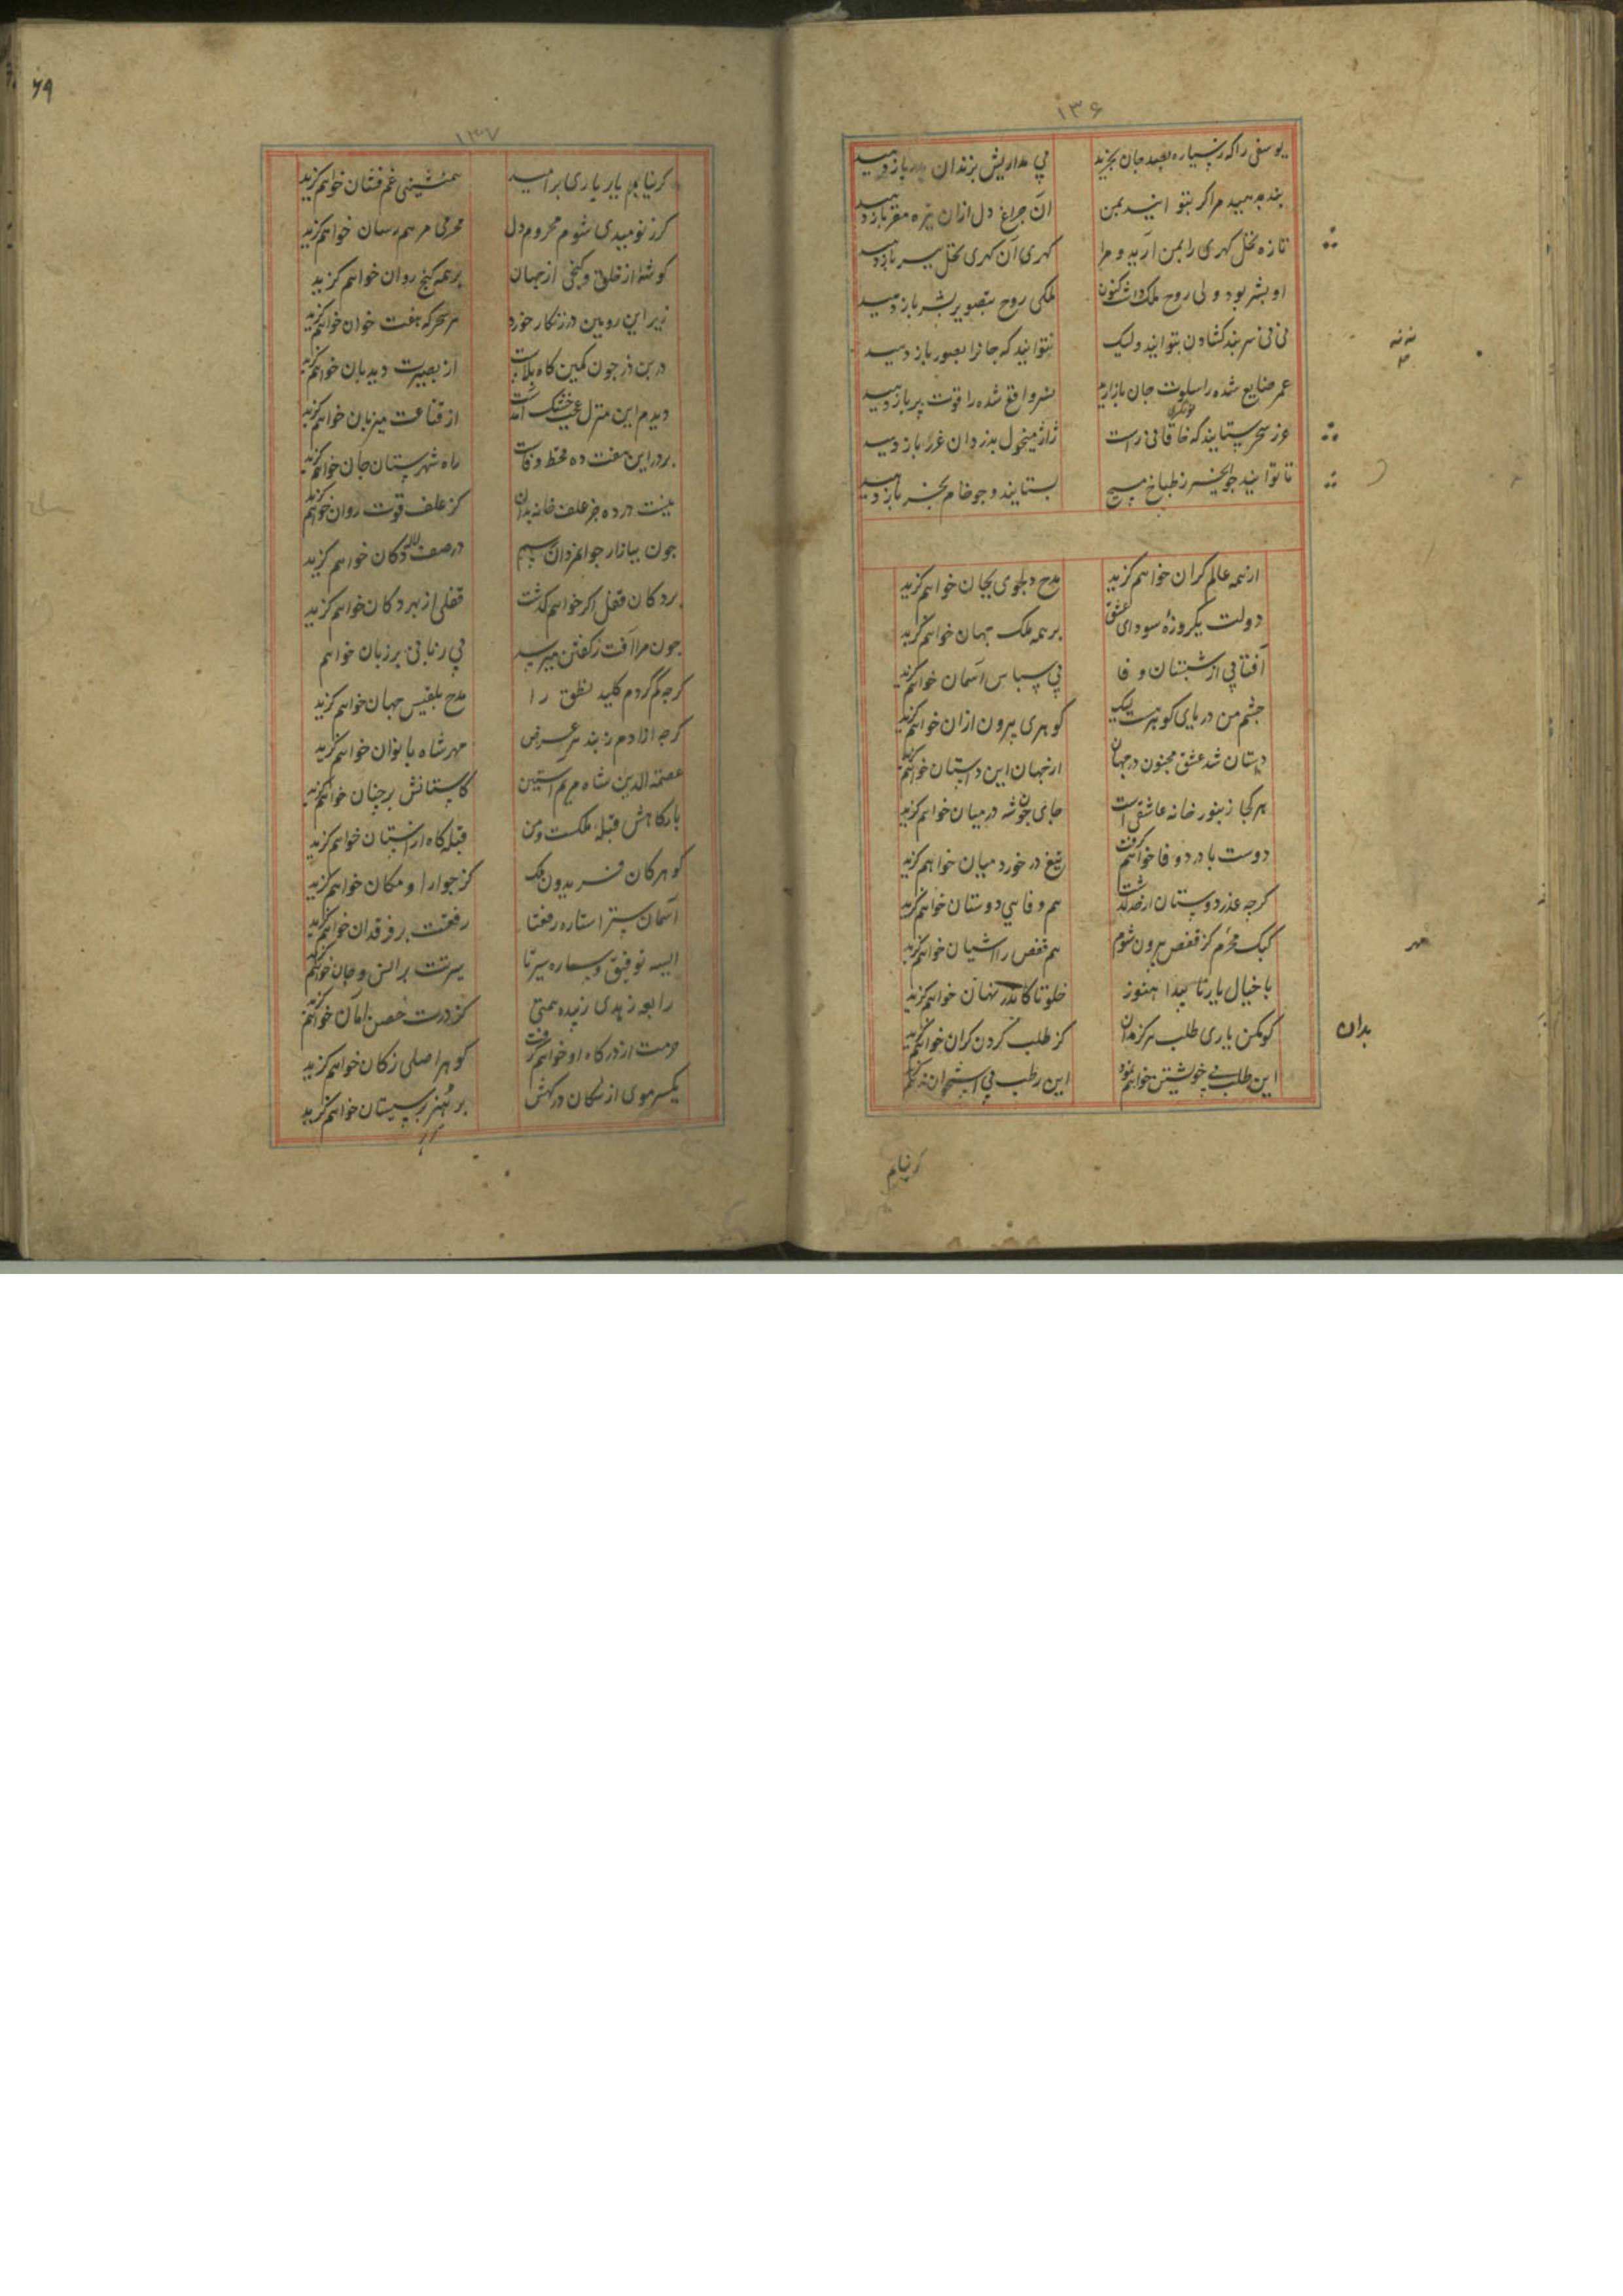 ۱۳۶
یوسفی را که ز سیاره بصد جان بخرید پی مداریش بزندان باز دهید
بند بدهید مرا گر بتوانید بمن آن چراغ دل ازان تیره مقر باز دهید
تازه نخل گهری را بمن آرید و مرا گهری آن گهری نخل ببر باز دهید
او بشر بود ولی روح ملک داشت کنون ملکی روح بتصویر بشر باز دهید
نی نی سر بند گشادن بتوانید ولیک نتوانید که جانرا بصور باز دهید
عمر ضایع شده را سلوت جان باز آرید نسر واقع شده را قوت پر باز دهید
عز سحر بستایند که خاقانی راست ژاژ منحول بدزدان غرر باز دهید
تا توانید جو پخته ز طباخ مسیح بستانید و جو خام بخر باز دهید
از همه عالم کران خواهم گزید مدح دلجوی بجان خواهم گزید
دولت یکروزه سودای عشق بر همه ملک جهان خواهم گزید
آفتابی از شبستان وفا بی سپاس آسمان خواهم گزید
چشم من دریای گوهر هست لیک گوهری بیرون ازان خواهم گزید
دستان شد عشق مجنون در جهان از جهان این دستان خواهم گزید
هر کجا زنبور خانه عاشقی است جای چون شه در میان خواهم گزید
دوست با درد وفا خواهم گرفت تیغ در خورد میان خواهم گزید
گرچه عذر دوستان از حد گذشت هم وفای دوستان خواهم گزید
کبک محرم کز قفص بیرون شوم هم قفص را آشیان خواهم گزید
با خیال یار ناپیدا هنوز خلوتا کاندر نهان خواهم گزید
گو مکن یاری طلب هرگز بدان کز طلب کردن کران خواهم گزید
بدان
این طلب بی خویشتن خواهم نمود این رطب بی استخوان خواهم گزید
گر نیابم
۶۹
۱۳۷
گر نیابم یار یاری بر امید همنشینی غم فشان خواهم گزید
گر ز نومیدی شوم محروم دل محرمی مرهم رسان خواهم گزید
گوشه از خلق و کنجی از جهان بر همه گنج روان خواهم گزید
زیر این رویین دز زنگار خورد هر سحرگه هفت خوان خواهم گزید
در بن دز چون کمین گاه بلاست از بصیرت دیدبان خواهم گزید
دیدم این منزل عجب خشک آمدست از قناعت میزبان خواهم گزید
بر در این هفت ده قحط وفاست راه شهرستان جان خواهم گزید
نیست در ده جز علف خانه بدان کز علف قوت روان خواهم گزید
چون ببازار جوانمردان رسم در صف لالان دکان خواهم گزید
بر دکان قفل گر خواهم گذشت قفلی از بهر دکان خواهم گزید
چون مرا آفت ز گفتن میرسد بی زبانی بر زبان خواهم
گرچه گم کردم کلید نطق را مدح بلقیس جهان خواهم گزید
گرچه آزادم ز بند هر غرض مهر شاه بانوان خواهم گزید
عصمة الدین شاه مریم آستین کآستانش بر جنان خواهم گزید
بارگاهش قبله ملکست و من قبله گاه از آستان خواهم گزید
گوهر کان فریدون ملک کز جوار او مکان خواهم گزید
آسمان ستر استاره رفعتا رفعت بر فرقدان خواهم گزید
آسیه توفیق و ساره سیرتا سیرتت بر انس و جان خواهم گزید
رابعه زهدی زبیده همتی کز درت حصن امان خواهم گزید
حرمت از درگاه او خواهم گرفت گوهر اصلی ز کان خواهم گزید
یکسر موی از سگان درگهش بر هزبر سیستان خواهم گزید